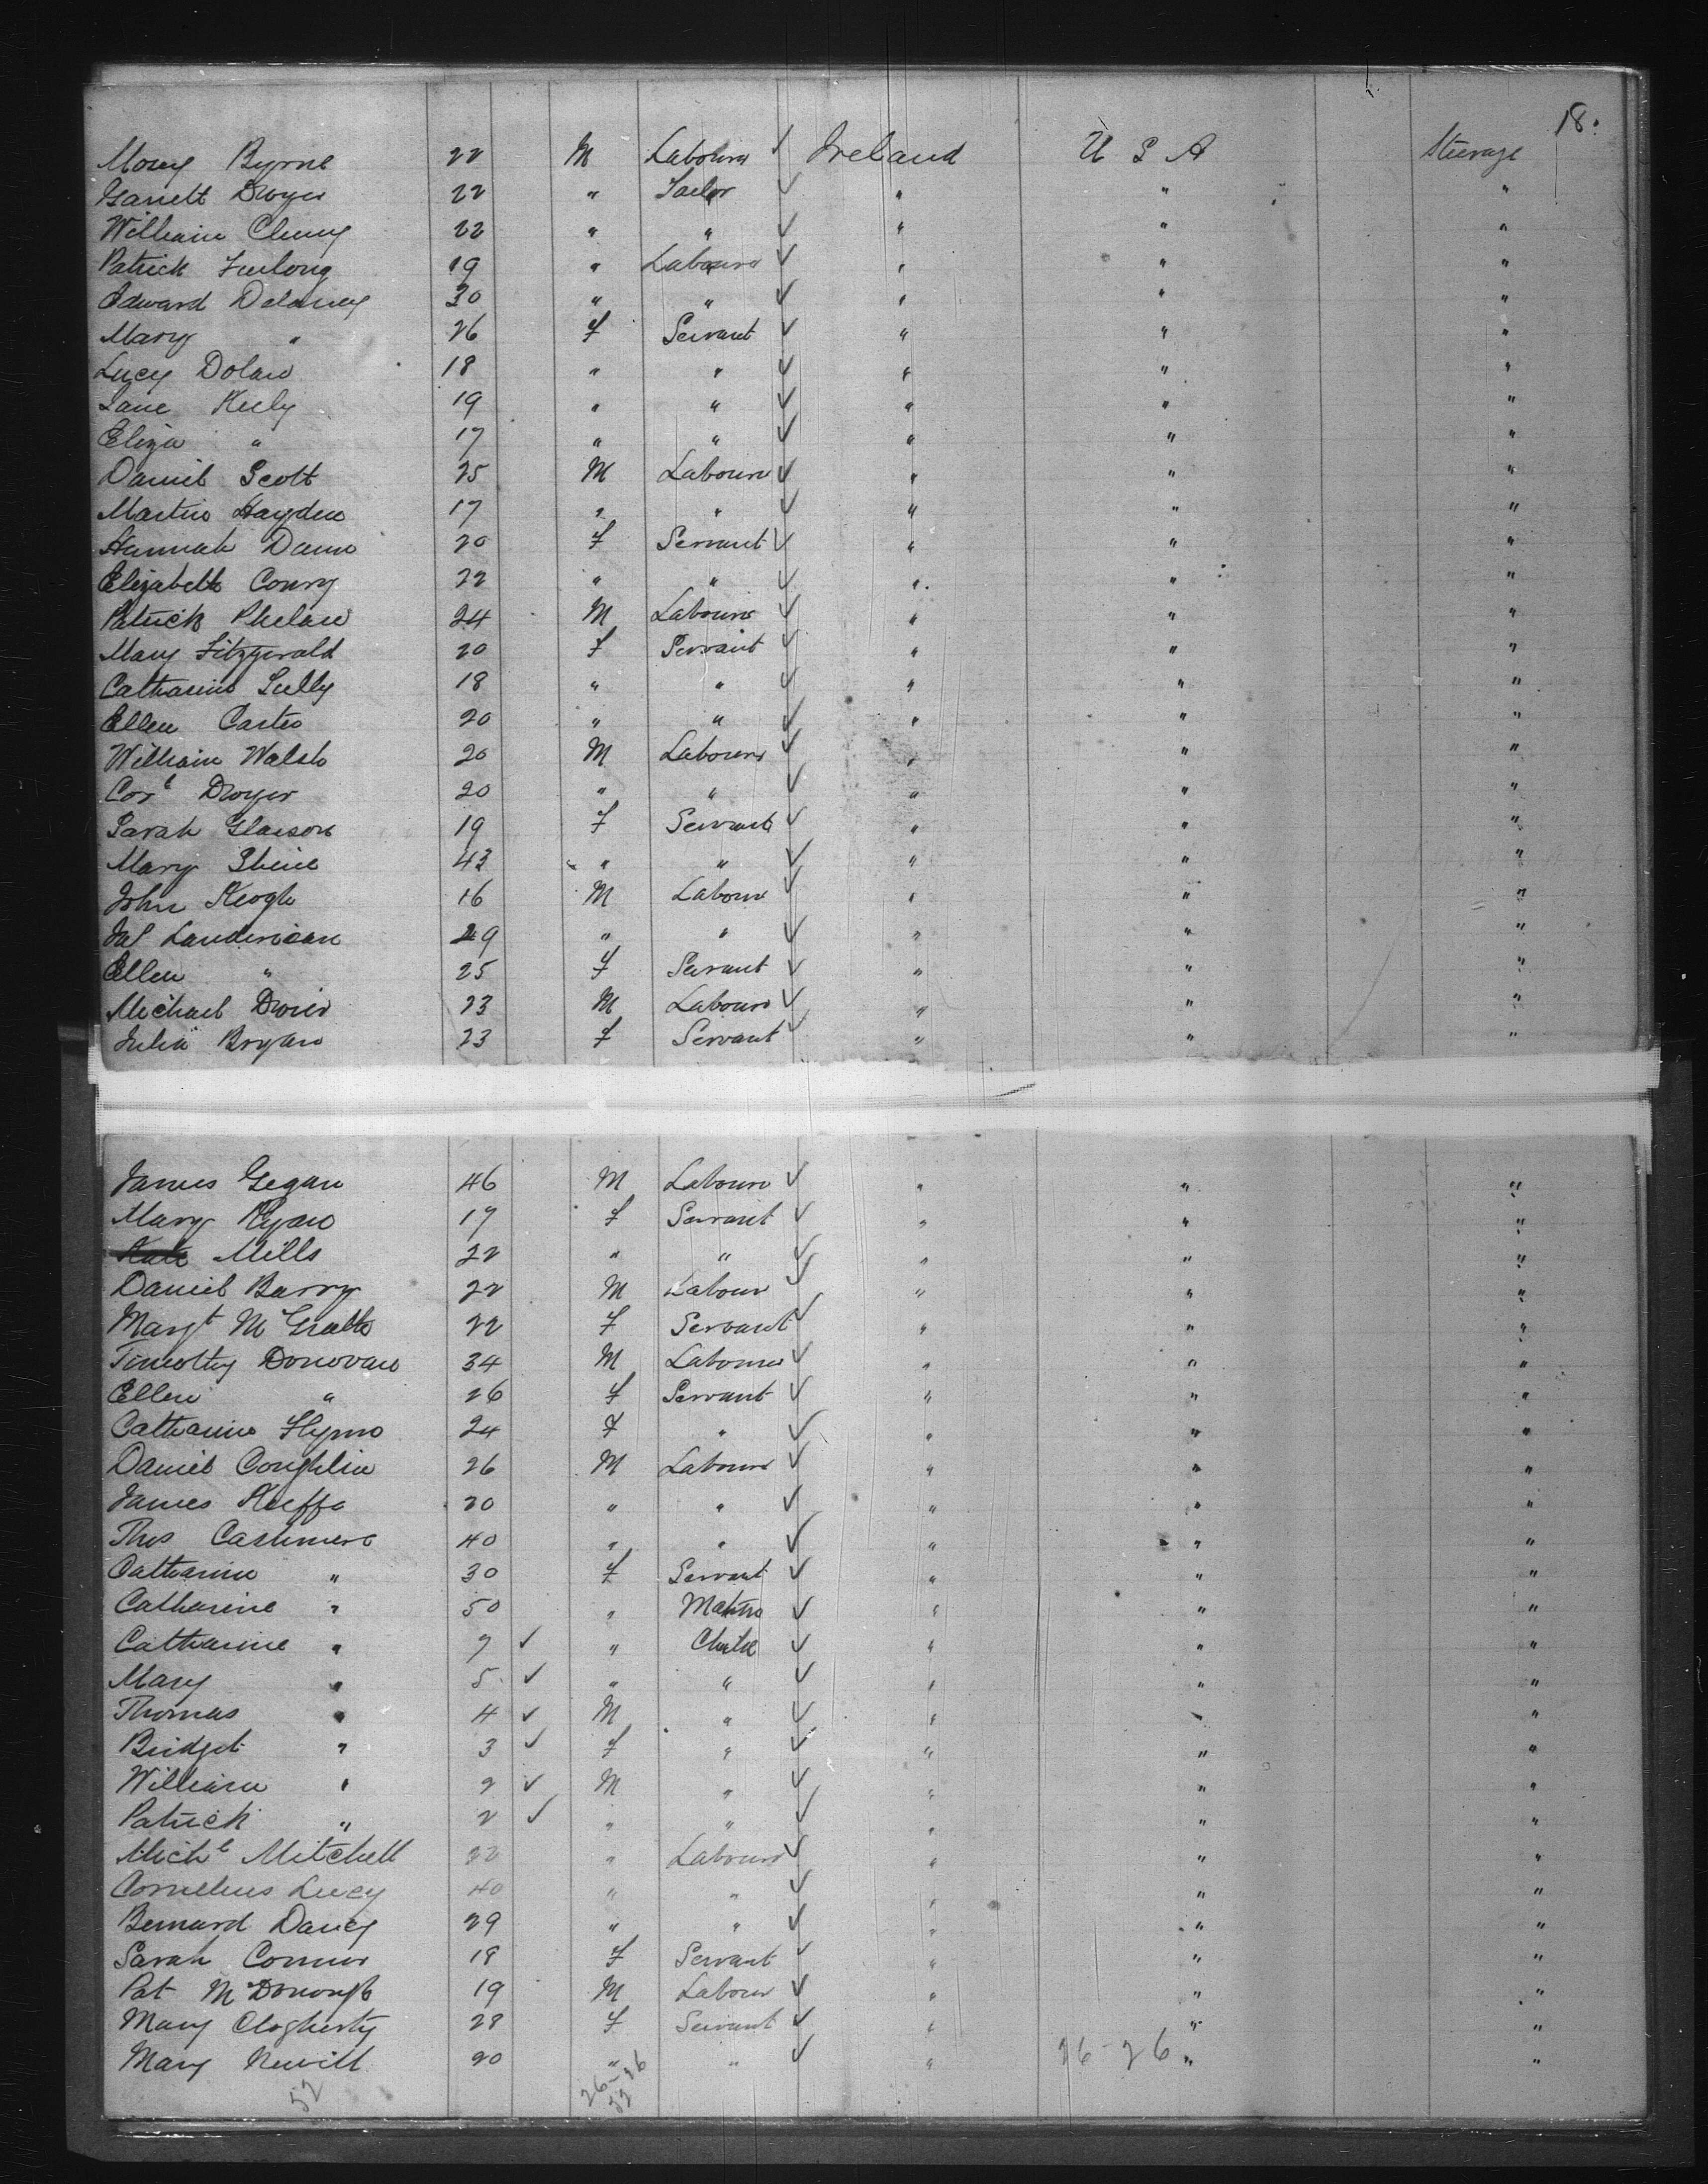 18.
Byrne 22 M Labourer Ireland U S A Steerage
Garrett Dwyer 22 " Tailor " " "
William 22 " " " " "
Patrick Furlong 19 " Labourer " " "
Edward Delaney 30 " " " " "
Mary " 26 F Servant " " "
Lucy Dolan 18 " " " " "
Jane Keely 19 " " " " "
Eliza " 17 " " " " "
Daniel Scott 25 M Labourer " " "
Martin Hayden 17 " " " " "
Hannah Dunn 20 F Servant " " "
Elizabeth Conry 22 " " " " "
Patrick Phelan 24 M Labourer " " "
Mary Fitzgerald 20 F Servant " " "
Catharine Scully 18 " " " " "
Ellen Carter 20 " " " " "
William Walsh 20 M Labourer " " "
Corl Dwyer 20 " " " " "
Sarah Glason 19 F Servant " " "
Mary Sheil 43 " " " " "
John Keogh 16 M Labour " " "
Landerican 29 " " " " "
Ellen " 25 F Servant " " "
Michael Dwier 23 M Labourer " " "
Julia Bryan 23 F Servant " " "
James Gegan 46 M Labourer " " "
Mary Ryan 17 F Servant " " "
Kate Mills 22 " " " " "
Daniel Barry 22 M Labour " " "
Margt McGrath 22 F Servant " " "
Timothy Donovan 34 M Labourer " " "
Ellen " 26 F Servant " " "
Catharine Flynn 24 F " " " "
Daniel Coughlin 26 M Labourer " " "
James Keeffe 20 " " " " "
Thos Cashmere 40 " " " " "
Catharine " 30 F Servant " " "
Catharine " 50 " Matron " " "
Catharine " 7 " Child " " "
Mary " 5 " " " " "
Thomas " 4 M " " " "
Bridget " 3 F " " " "
William " 2 M " " " "
Patrick " 2 " " " " "
Michl Mitchell 22 " Labourer " " "
Cornelius Lucy 40 " " " " "
Bernard Dancy 29 " " " " "
Sarah Connor 18 F Servant " " "
Pat McDonough 19 M Labour " " "
Mary Clogherty 28 F Servant " " "
Mary Nevill 20 " " " 26-26 " "
52 26-26
52